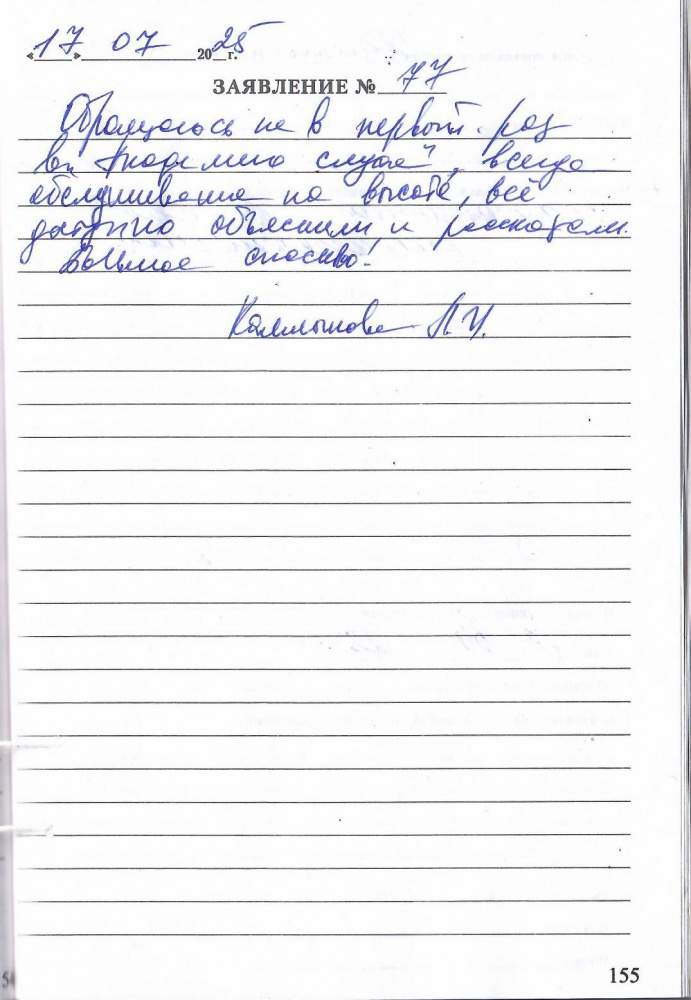 «17» 07 2025 г.
ЗАЯВЛЕНИЕ № 77
Обращаюсь не в первый раз
в „Академию слуха", всегда
обслуживание на высоте, всё
доступно объяснили и рассказали.
Большое спасибо!
Л.И.
155